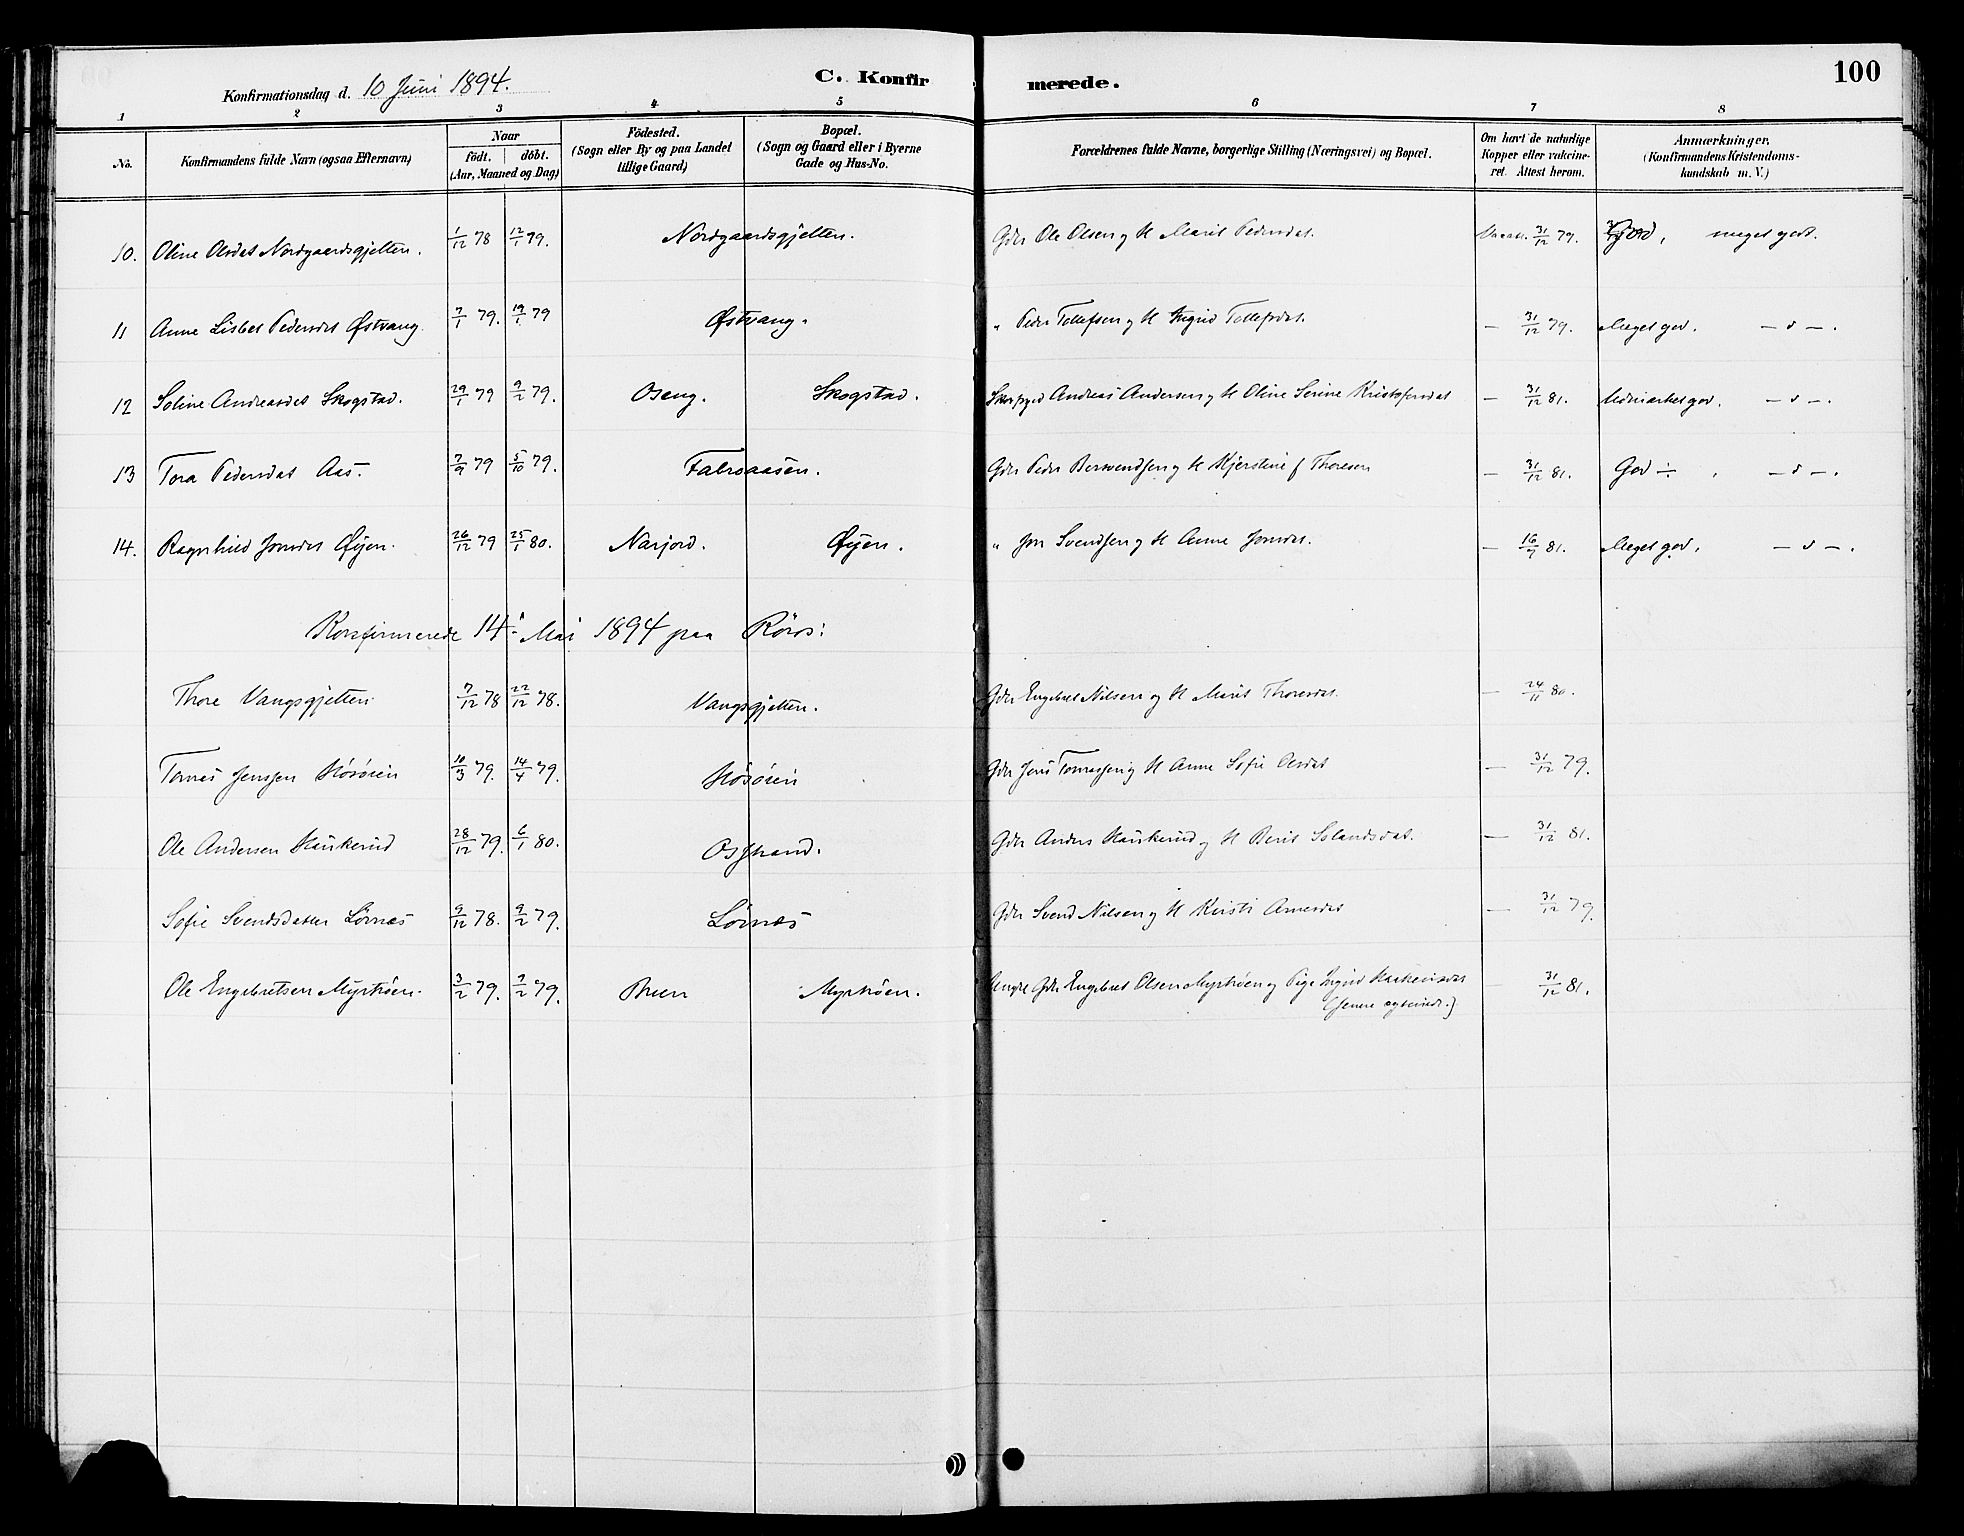 Konfirmationsdag d. 10 Juni 1894. C. Konfirmerede. 100
1 2 3 4 5 6 7 8
No. Konfirmandens fulde Navn (ogsaa Efternavn) Naar födt. döbt. (Aar, Maaned og Dag) Födested. (Sogn eller By og paa Landet tillige Gaard) Bopæl. (Sogn og Gaard eller i Byerne Gade og Hus-No. Forældrenes fulde Navne, borgerlige Stilling (Næringsvei) og Bopæl. Om havt de naturlige Kopper eller vakcineret. Attest herom. Anmærkninger. (Konfirmandens Kristendomskundskab m. V.)
10. Oline Olsdat Nordgaardsgjelten. 1/12 78 12/1 79. Nordgaardsgjelten. Gdr Ole Olsen og H Marit Pedersdat. 31/12 79. meget god.
11 Anne Lisbet Pedersdat Østvang. 7/1 79. 19/1 79 Østvang. " Peder Tollefsen og H Ingrid Tollefsdat. — 31/12 79. Meget god. — d —.
12 Soline Andreasdat Skogstad. 29/1 79 9/2 79. Oseng. Skogstad. Andreas Andersen og H Oline Serine Kristofersdat — 31/12 81. Udmærket god. — d —.
13 Tora Pedersdat Aas. 7/9 79 5/10 79. Falrsaasen. Gdr Peder Berwendsen og H Kjerstine f Thoresen — 31/12 81. God ÷ . — d —.
14. Ragnhild Jonsdat Øjen. 26/12 79 25/1 80. Narjord. Øjen. " Jon Svendsen og H Anne Jonsdat. — 16/7 81. Meget god. — d —.
Konfirmerede 14de Mai 1894 paa Röros:
Thore Vangsgjelten 7/12 78 22/12 78. Vangsgjelten. Gdr Engebret Nilsen og H Marit Thoresdat. — 24/11 80.
Tomas Jensen Hösöien 10/3 79. 14/4 79. Hösöien Gdr Jens Tomassen og H Anne Sofie Olsdat — 31/12 79.
Ole Andersen Haukerud 28/12 79. 6/1 80. Osstrand. Gdr Anders Haukerud og H Berit Erlandsdat. — 31/12 81.
Sofie Svendsdatter Lörnæs 9/12 78. 9/2 79. Lörnæs Gdr Svend Nilsen og H Kirsti Arnesdat — 31/12 79.
Ole Engebretsen Myrhöen. 3/2 79. 7/2 79. Bruen Myrhöen. Ungk Gdr Engebret Olsen Myrhöen og Pige Ingrid Haakensdat — 31/12 81.
(senere egteviede.)